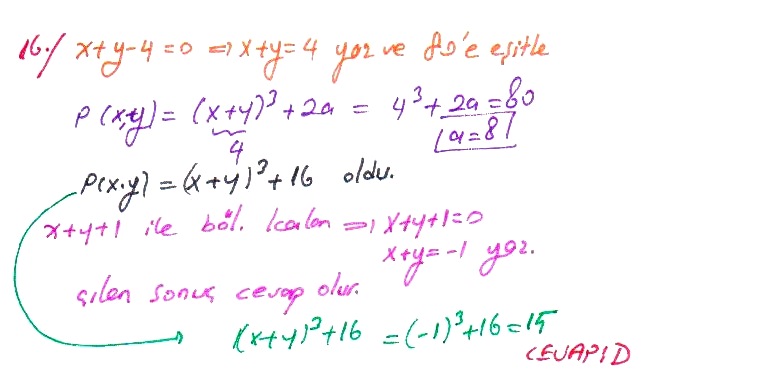 16-/ x+y-4=0 ⇒ x+y=4 yaz ve 80'e eşitle
P(x,y) = (x+y)³+2a = 4³+2a=80
4
a=8
P(x,y) = (x+y)³+16 oldu.
x+y+1 ile böl. kalan ⇒ x+y+1=0
x+y=-1 yaz.
çılan sonuç cevap olur.
(x+y)³+16 = (-1)³+16=15
CEVAP D